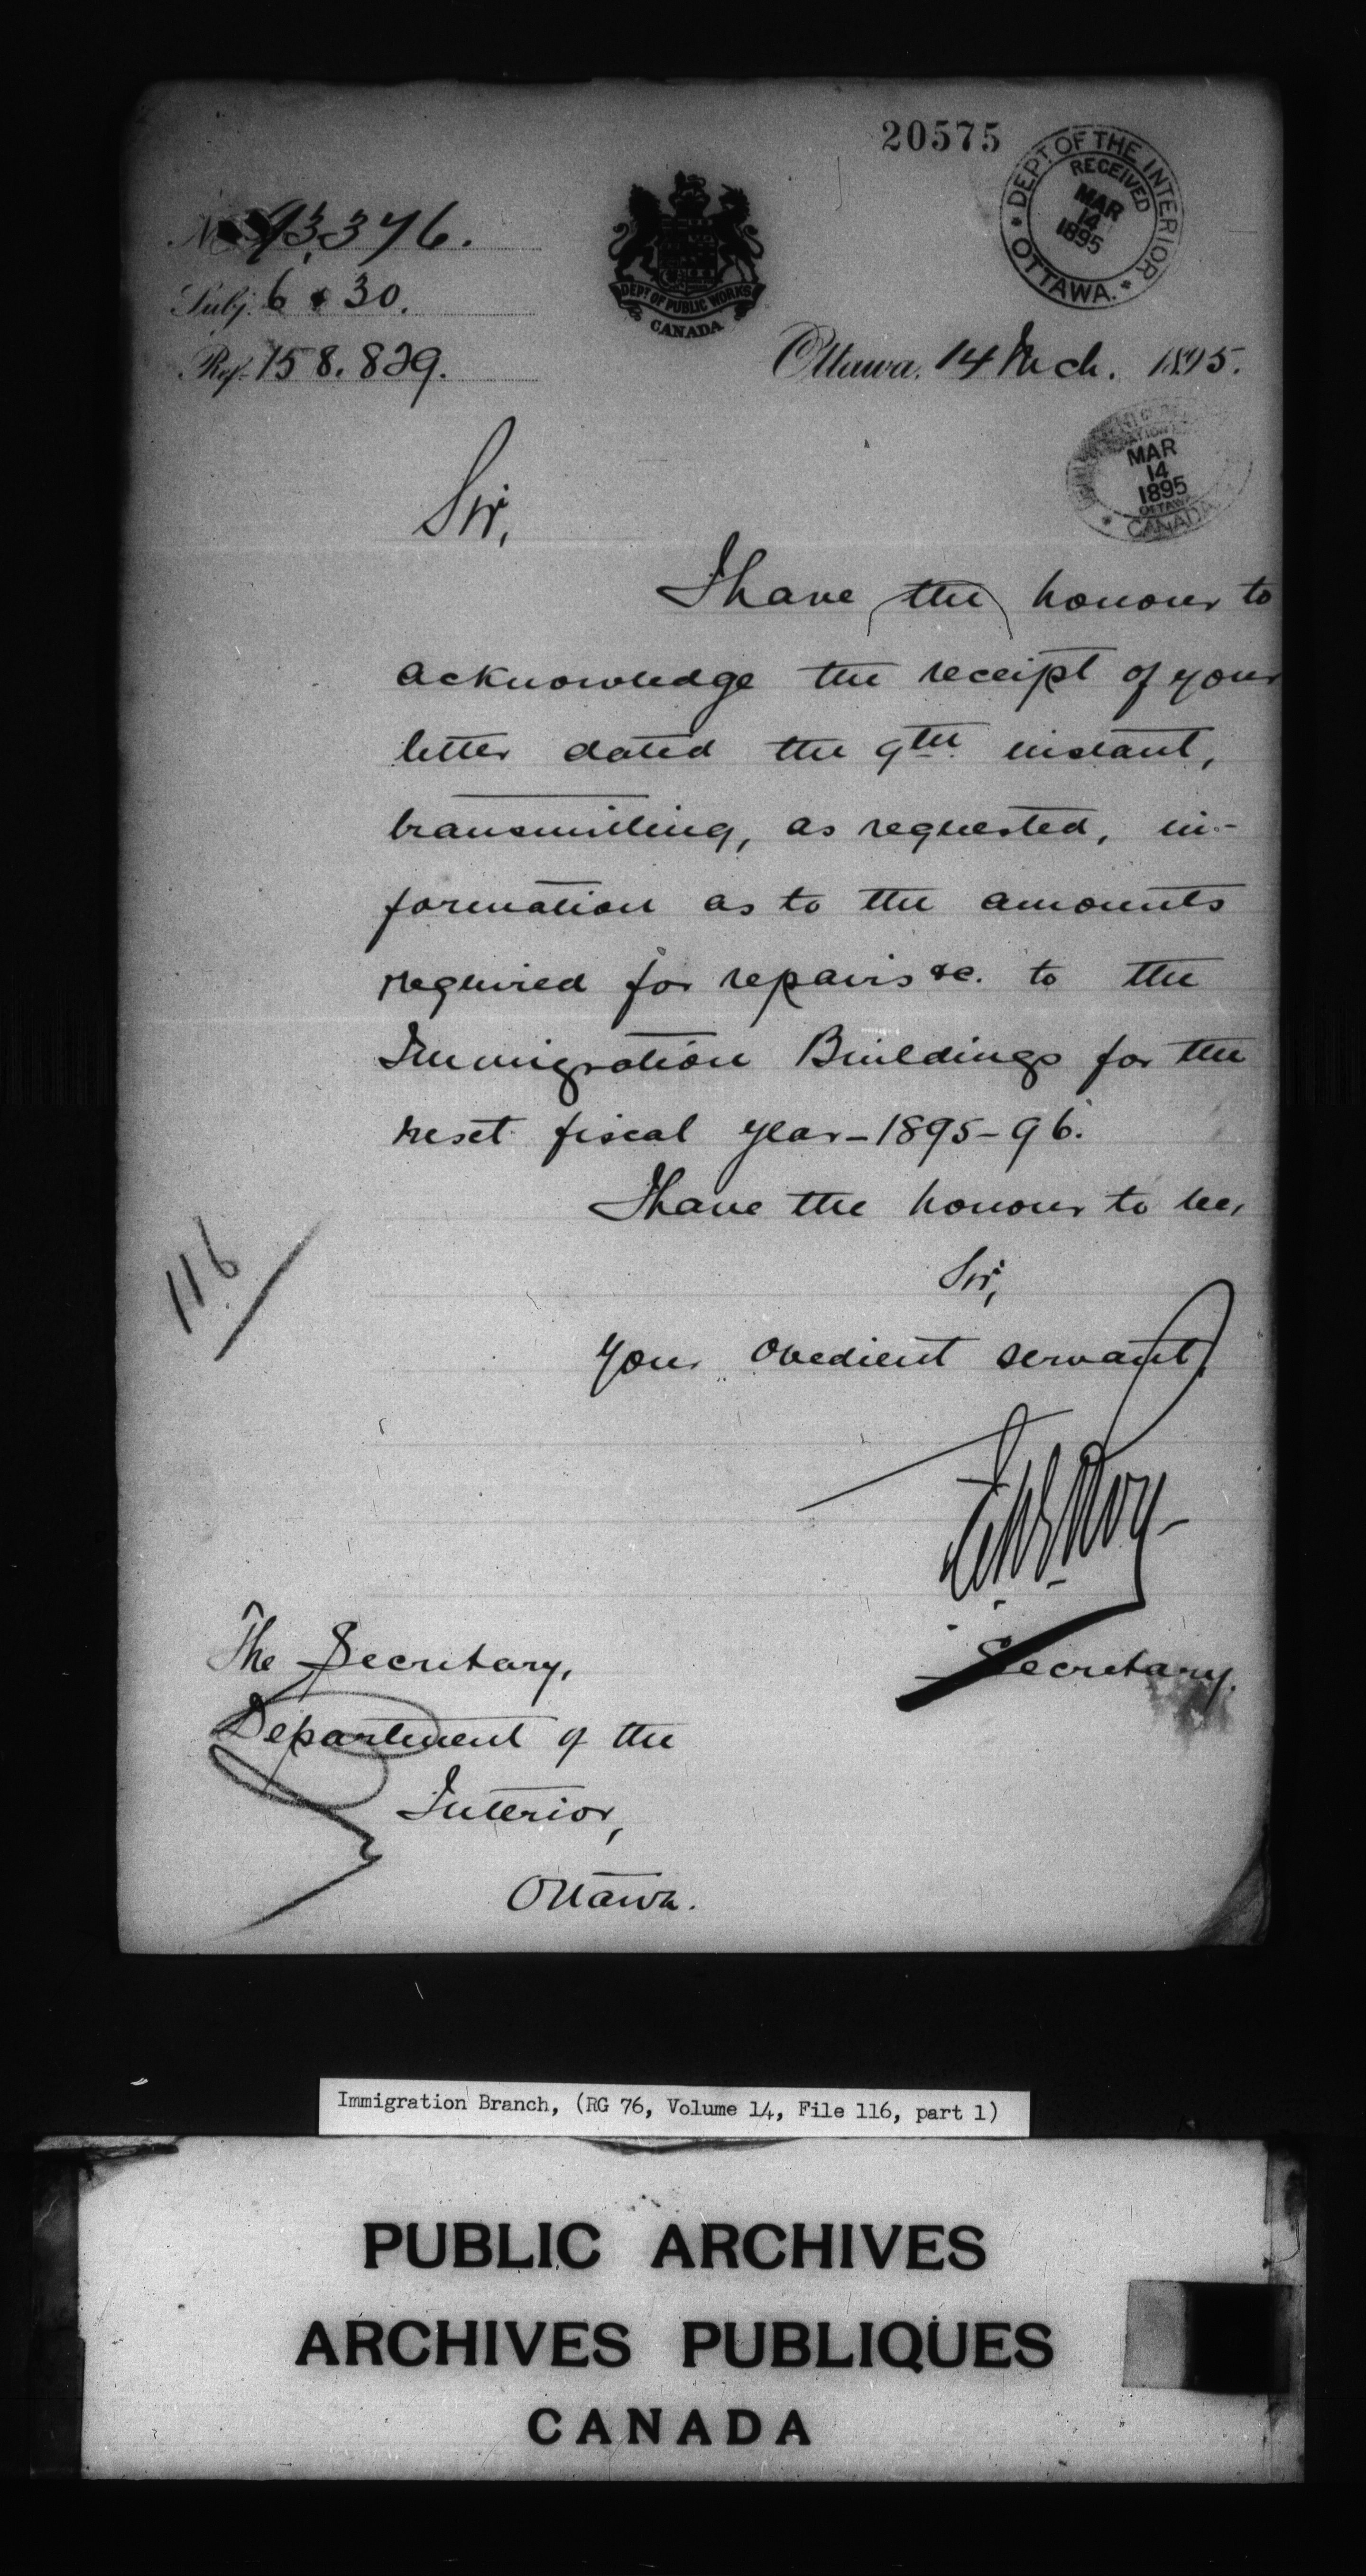 20575
DEPT. OF THE INTERIOR
RECEIVED
MAR
14
1895
OTTAWA.
No 93,376.
Subj. 6 & 30.
Ref. 158.829.
DEPT OF PUBLIC WORKS
CANADA
Ottawa, 14 Mch. 1895.
MAR
14
1895
OTTAWA
CANADA
Sir,
I have the honour to
acknowledge the receipt of your
letter dated the 9th. instant,
transmitting, as requested, in-
formation as to the amounts
required for repairs &c. to the
Immigration Buildings for the
next fiscal year - 1895-96.
I have the honour to be,
Sir,
116
Your obedient servant,
Secretary.
The Secretary,
Department of the
Interior,
Ottawa.
Immigration Branch, (RG 76, Volume 14, File 116, part 1)
PUBLIC ARCHIVES
ARCHIVES PUBLIQUES
CANADA